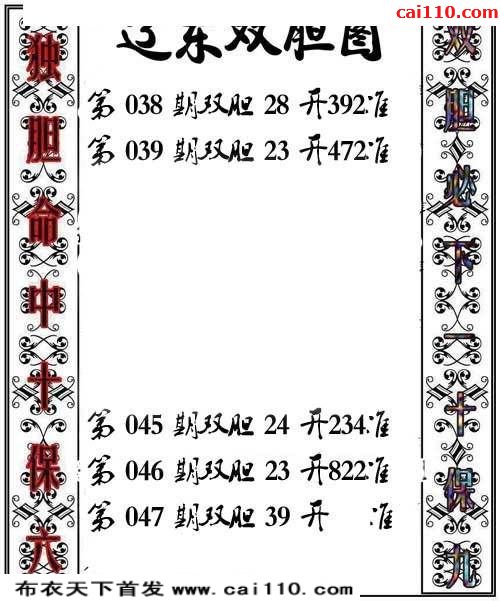 cai110.com
辽东双胆图
独胆命中十保六
双胆必下二十保九
第 038 期双胆 28 开392准
第 039 期双胆 23 开472准
第 045 期双胆 24 开234准
第 046 期双胆 23 开822准
第 047 期双胆 39 开 准
布衣天下首发 www.cai110.com